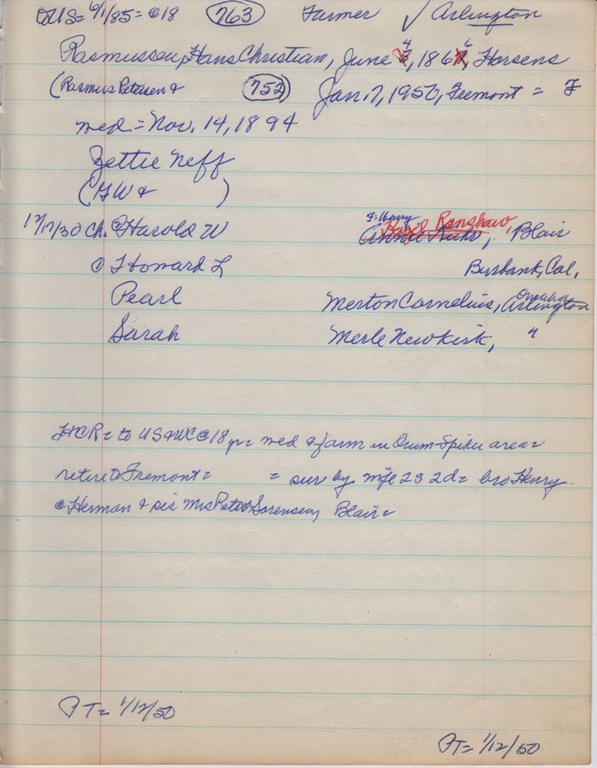 US= 6/1/85= @18 763 Farmer ✓ Arlington
Rasmussen, Hans Christian, June 4, 1866, Horsens
(Rasmus Petersen & 752) Jan. 7, 1950, Fremont = F
med = Nov. 14, 1894
Zettie Neff
(FW & )
12/17/30 Ch. @ Harold W Hazel Ranshaw, Blair
@ Howard L Burbank, Cal,
Pearl Merton Cornelius, Omaha Arlington
Sarah Merle Newkirk, "
HCR= to US & WC @ 18 yr= med & farm in Orum-Spiker area=
retire to Fremont= = sur by wife 2s 2d= bro Henry
@ Herman & sis Mrs Peter Sorensen, Blair=
PT= 1/12/50
PT= 1/12/50